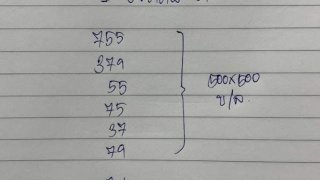 755
379
55
75
37
79
500×500
บ/ล